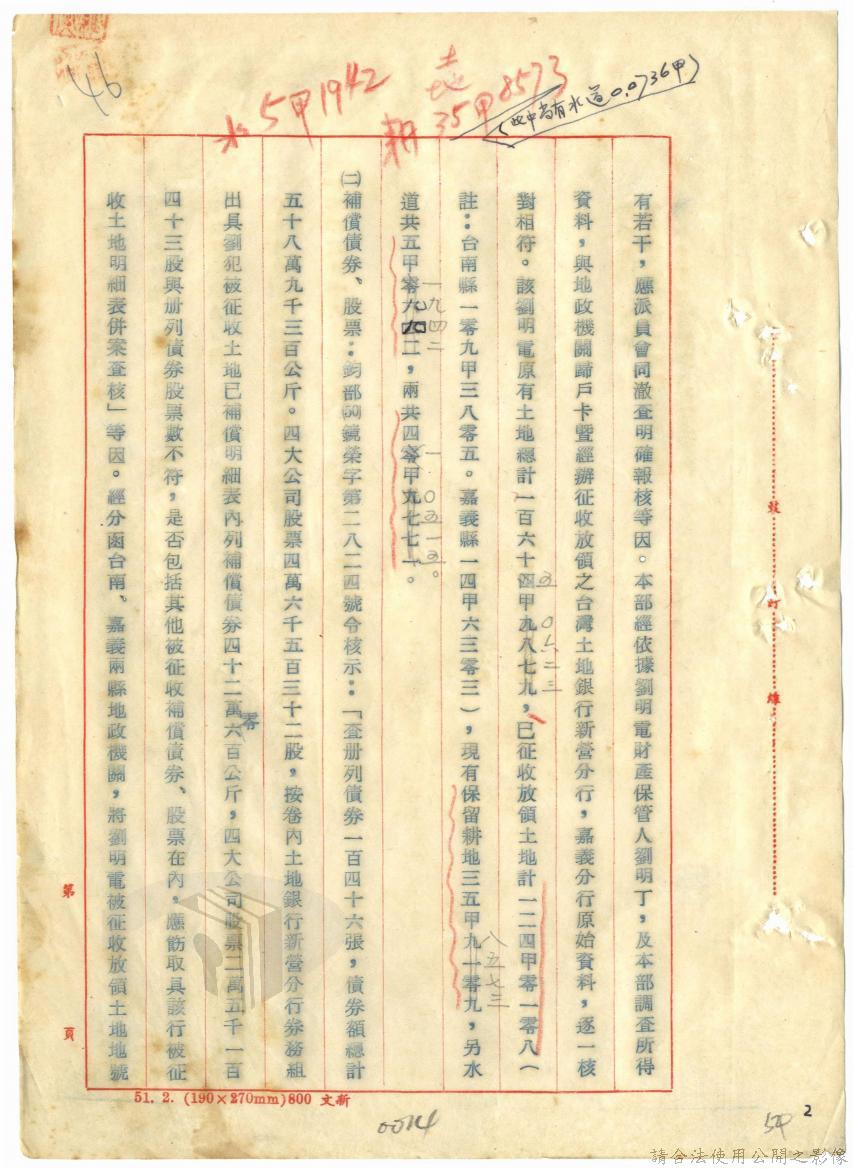 46
水5甲1942
耕35甲8573
(此中尚有水道0.0736甲)
有若干，應派員會同澈查明確報核等因。本部經依據劉明電財產保管人劉明丁，及本部調查所得
資料，與地政機關歸戶卡暨經辦征收放領之台灣土地銀行新營分行，嘉義分行原始資料，逐一核
對相符。該劉明電原有土地總計一百六十四甲九八七九，已征收放領土地計一二四甲零一零八（
五 〇六二三
註：台南縣一零九甲三八零五。嘉義縣一四甲六三零三），現有保留耕地三五甲九一零九，另水
八五七三
道共五甲零六六二，兩共四零甲九七七一。
一九四二
一·〇五一五。
㈡補償債券、股票：鈞部㊿鏡榮字第二八二四號令核示：「查册列債券一百四十六張，債券額總計
五十八萬九千三百公斤。四大公司股票四萬六千五百三十二股，按卷內土地銀行新營分行券務組
出具劉犯被征收土地已補償明細表內列補償債券四十二萬六百公斤，四大公司股票二萬五千一百
零
四十三股與册列債券股票數不符，是否包括其他被征收補償債券、股票在內，應飭取具該行被征
收土地明細表併案查核」等因。經分函台南、嘉義兩縣地政機關，將劉明電被征收放領土地地號
裝
訂
線
第
頁
51. 2. (190×270mm)800 新文
0014
2
請合法使用公開之影像